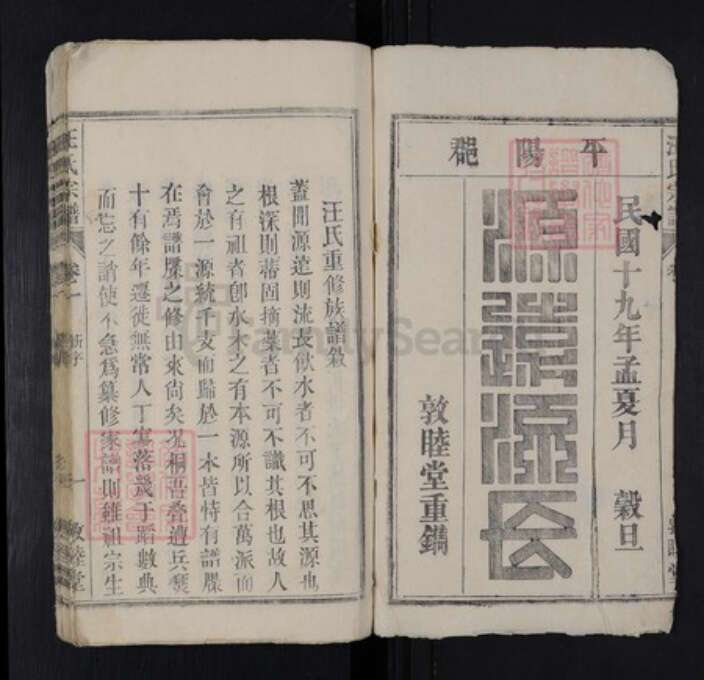 平陽郡
民國十九年孟夏月 穀旦
源遠流長
敦睦堂重鐫
汪氏重修族譜敘
蓋聞源遠則流長飲水者不可不思其源也
根深則蒂固摘葉者不可不識其根也故人
之有祖者卽水木之有本源所以合萬派而
會於一源統千支而歸於一木皆恃有譜牒
在焉譜牒之修由來尚矣况桐吾叠遭兵燹
十有餘年遷徙無常人丁寥落幾于蹈數典
而忘之誚使不急爲纂修家譜則雖祖宗生
汪氏宗譜 卷一 新序 一 敦睦堂
FamilySearch